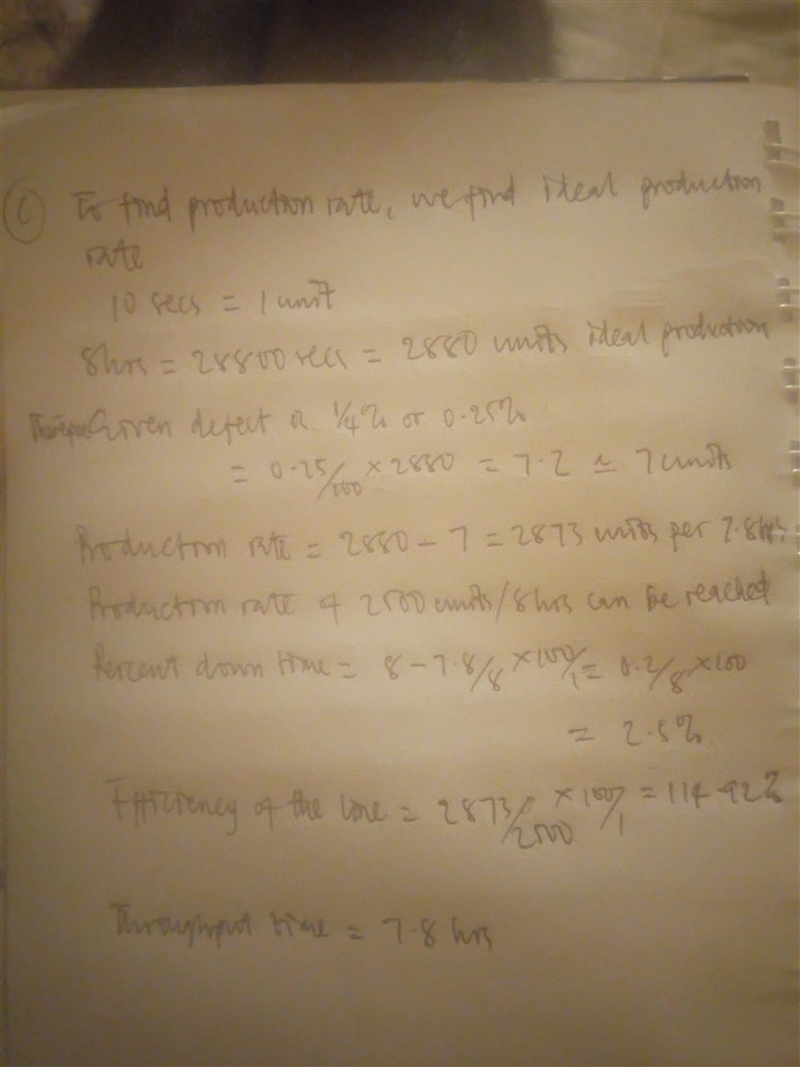 (C) To find production rate, we find ideal production
rate
10 secs = 1 unit
8hrs = 28800 secs = 2880 units ideal production
Given defect is 1/4% or 0.25%
= 0.25/100 × 2880 = 7.2 ≃ 7 units
Production rate = 2880 - 7 = 2873 units per 7.8hrs
Production rate of 2500 units/8hrs can be reached
Percent down time = 8 - 7.8/8 × 100/1 = 0.2/8 × 100
= 2.5%
Efficiency of the line = 2873/2500 × 100/1 = 114.92%
Throughput time = 7.8 hrs